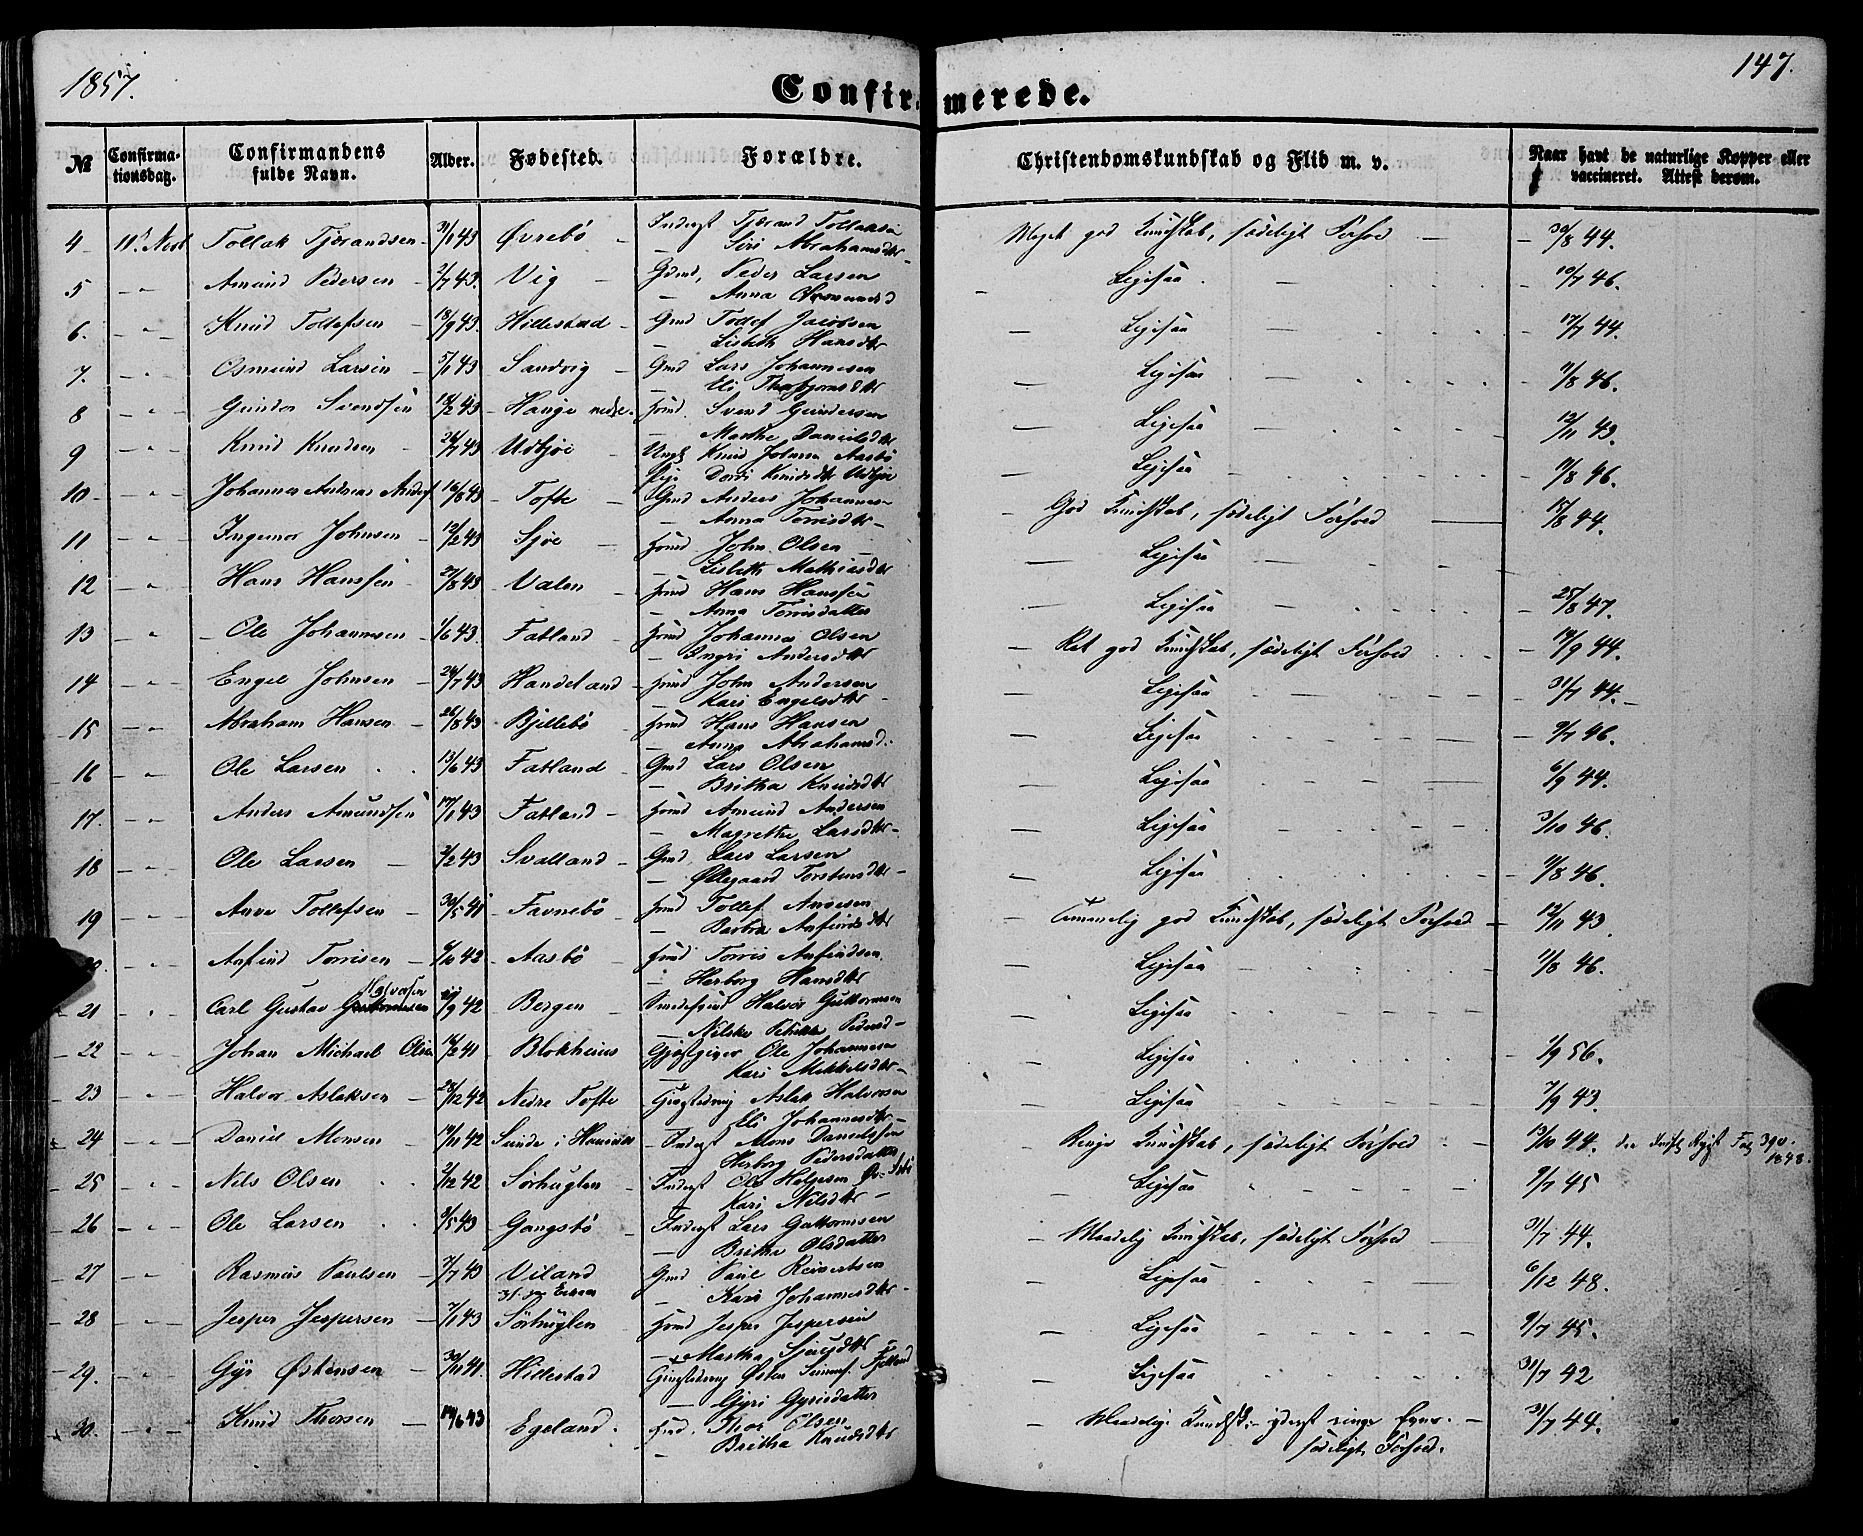 1857.
147.
Confirmerede.
№ Confirmationsdag. Confirmandens fulde Navn. Alder. Fødested. Forældre. Christendomskundskab og Flid m. v. Naar havt de naturlige Kopper eller vaccineret. Attest derom.
4 Tollak Tjørandsen 31/1 43 Øvrebö Inderst Tjørand Meget god Kundskab, sædeligt Forhold 30/8 44.
Siri Abrahamsdtr
5 Amund Pedersen 2/7 43. Vig Gmd, Peder Larsen Ligesaa 10/7 46.
Anna
6. Knud Tollefsen 18/9 43. Hillestad Gmd Tollef Jacobsen Ligesaa 17/7 44.
Lisbeth Hansdtr
7. Osmund Larsen 5/1 43 Sandvig Gmd Lars Johannesen Ligesaa 11/8 46.
8 Gunder Svendsen 18/2 43 Hauge nedre. Hmd. Svend Gundersen Ligesaa 12/11 43.
Marthe Danielsdtr
9 Knud Knudsen 24/7 43 Udbjoe Knud Johnsen Aasbö Ligesaa 11/8 46.
Knudsdtr Udbjoe
10 Johannes Andreas Anders 16/6 43 Tofte Gmd Anders Johannesen God Kundskab, sædeligt Forhold 17/8 44.
Anna Torrisdtr
11 Ingemar Johnsen 12/2 43 Sjoe Hmd John Olsen Ligesaa
Lisbeth Mathiasdtr
12 Hans Hanssen 27/8 43 Valen Hmd Hans Hanssen Ligesaa 25/8 47.
Anna Torrisdatter
13 Ole Johannesen 1/6 43. Fatland Hmd Johannes Olsen Ret god Kundskab, sædeligt Forhold 19/9 44.
Ingri Andersdtr
14 Engel Johnsen 24/7 43 Handeland Hmd John Andersen Ligesaa 31/7 44.
Kari Engelsdtr
15 Abraham Hansen 26/8 43 Bjellebö Hmd Hans Hansen Ligesaa 9/7 46.
Anna Abrahamsd.
16 Ole Larsen 13/6 43 Fatland Gmd Lars Olsen Ligesaa 6/9 44.
Britha Knudsdtr
17. Anders Amundsen 17/1 43 Fatland Hmd Amund Andersen Ligesaa 3/10 46.
Magrethe Larsdtr
18 Ole Larsen 2/2 43 Svalland Gmd, Lars Larsen Ligesaa 11/8 46.
Øllegaard Torstensdtr
19 Anve Tollefsen 30/5 41 Favnebö Hmd Tollef Anvesen Temmelig god Kundskab, sædeligt Forhold 12/11 43.
Barbra Anfindsdtr
20. Anfind Torrisen 6/10 42 Aasbö Hmd Torris Anfindsen. Ligesaa 11/8 46.
Herborg Hansdtr
Halvorsen
21 Carl Gustav Guttormsen /9 42 Bergen Halvor Guttormsen Ligesaa
Pedersd
22 Johan Michael Olsen 14/2 41 Blokhuus Gjæstgiver Ole Johannesen Ligesaa 1/9 56.
Kari Mikkelsdtr
23 Halvor Aslaksen 28/12 42 Nedre Tofte Aslak Halvorsen Ligesaa 7/9 43.
Eli Johannesdtr
24 Daniel Monsen 19/11 42 Sunde i Inderst Mons Danielsen Ringe Kundskab, sædeligt Forhold 13/10 44. 390.
Herborg Pedersdatter 1848.
25 Nils Olsen 2/12 42 Sørhuglen Inderst Ole Helgesen Ligesaa 9/7 45
Kari Nilsdtr
26 Ole Larsen 3/5 43 Gangsbö Inderst Lars Guttormsen Maadelig Kundskab, sædeligt Forhold 31/7 44.
Britha Olsdatter
27 Rasmus Paulsen 7/7 43 Viland Gmd Paul Reinertsen Ligesaa 6/12 48.
Kari Johannesdtr
28 Jesper Jespersen 7/1 43 Sørhuglen Hmd Jesper Jespersen Ligesaa 9/7 45.
Martha Sjursdtr
29. Gyri Østensen 30/11 41. Hillestad Østen Fjelland Ligesaa 31/7 42
Gyri Gyrisdatter
30. Knud Thorsen 14/6 43 Egeland. Hmd. Thor Olsen Maadelig Kundsk. yderst ringe Evner. 31/7 44.
Britha Knudsdtr sædeligt Forhold.